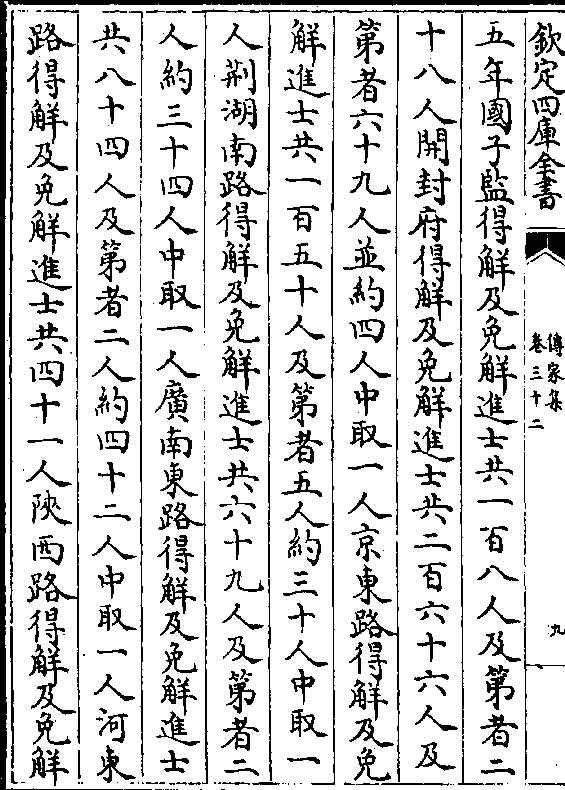 欽定四庫全書
傳家集
卷三十二
九
五年國子監得解及免解進士共一百八人及第者二
十八人開封府得解及免解進士共二百六十六人及
第者六十九人並約四人中取一人京東路得解及免
解進士共一百五十人及第者五人約三十人中取一
人荆湖南路得解及免解進士共六十九人及第者二
人約三十四人中取一人廣南東路得解及免解進士
共八十四人及第者二人約四十二人中取一人河東
路得解及免解進士共四十一人陝西路得解及免解